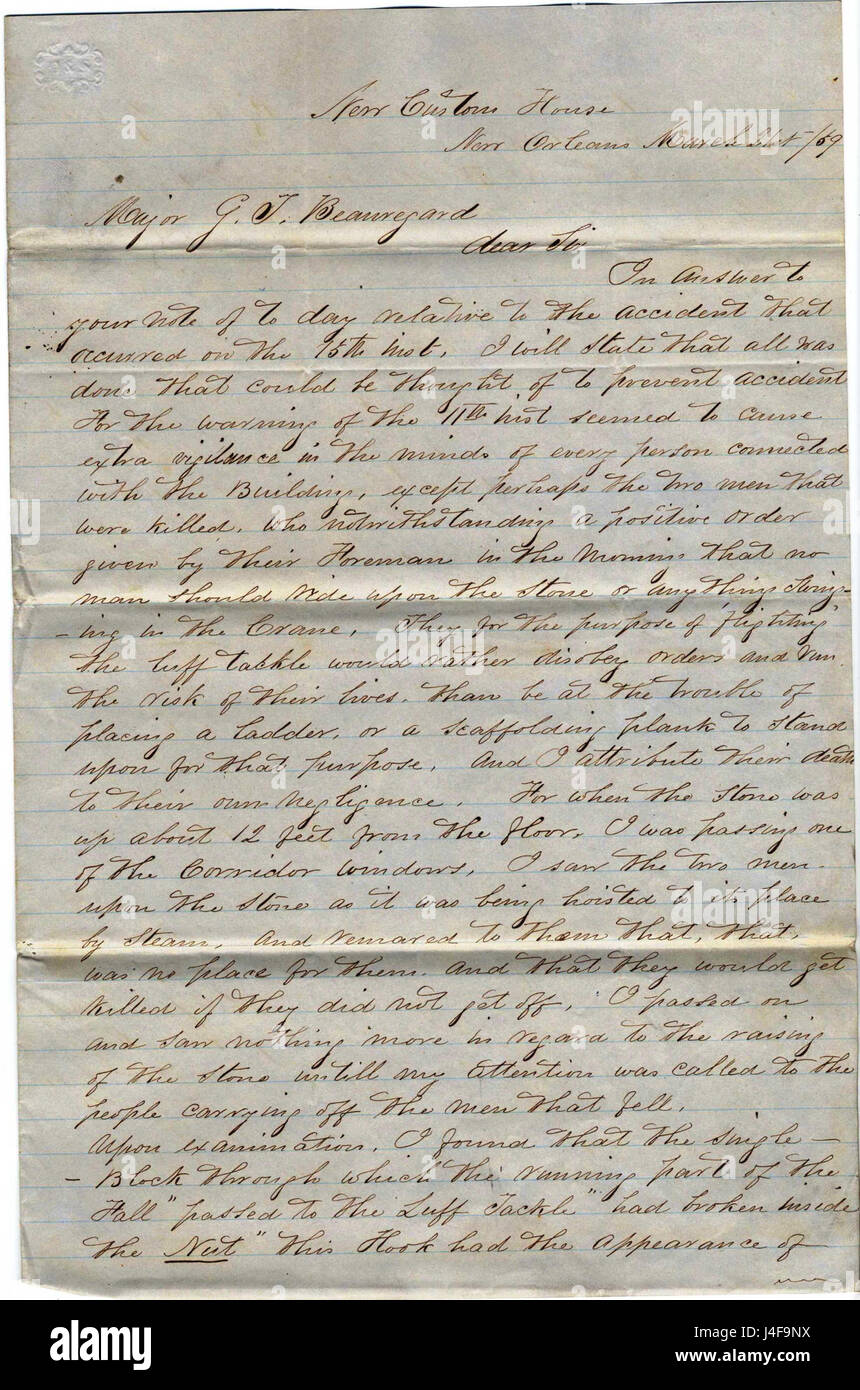 New Custom House
New Orleans March 21st /59
Major G. T. Beauregard
dear Sir
In answer to
your note of to day relative to the accident that
occurred on the 15th inst. I will state that all was
done that could be thought of to prevent accident
For the warning of the 11th inst seemed to cause
extra vigilance in the minds of every person connected
with the Building, except perhaps the two men that
were killed, who notwithstanding a positive order
given by their Foreman in the Morning that no
man should ride upon the Stone or any thing Swing-
-ing in the Crane. They for the purpose of "flighting"
the luff tackle would rather disobey orders and run
the risk of their lives, than be at the trouble of
placing a ladder, or a scaffolding plank to stand
upon for that purpose, and I attribute their death
to their own negligence. For when the Stone was
up about 12 feet from the floor, I was passing one
of the Corridor windows, I saw the two men
upon the Stone as it was being hoisted to its place
by Steam, and remared to them that, that,
was no place for them. and that they would get
killed if they did not get off, I passed on
and saw nothing more in regard to the raising
of the Stone untill my attention was called to the
people carrying off the men that fell.
Upon examination, I found that the single-
- Block through which "the running part of the
Fall" passed to the Luff Tackle" had broken inside
the Nut" this Hook had the appearance of
a alamy
alamy
Image ID: J4F9NX
www.alamy.com